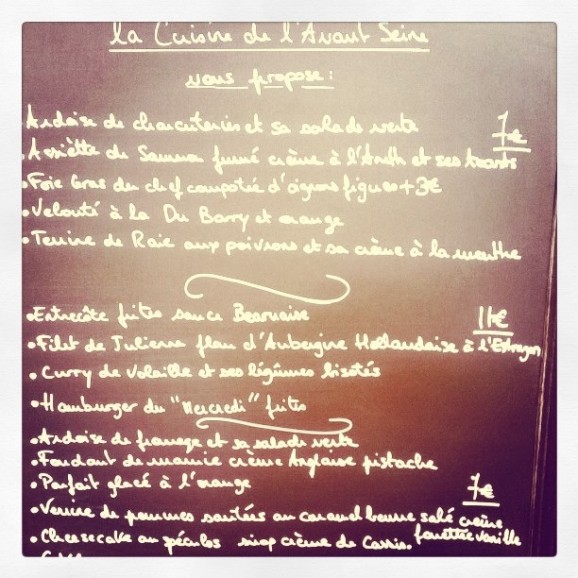 la Cuisine de l'Avant Seine
vous propose :
• Ardoise de charcuteries et sa salade verte 7€
• Assiette de Saumon fumé crème à l'Aneth et ses toasts
• Foie Gras du chef compotée d'oignons figues + 3€
• Velouté à la Du Barry et orange
• Terrine de Raie aux poivrons et sa crème à la menthe
• Entrecôte frites sauce Bearnaise 11€
• Filet de Julienne flan d'Aubergine Hollandaise à l'Estragon
• Curry de Volaille et ses légumes
• Hamburger du "Mercredi" frites
• Ardoise de fromage et sa salade verte
• Fondant de mamie crème Anglaise pistache
• Parfait glacé à l'orange 7€
• Verrine de pommes sautées au caramel beurre salé crème
fouettée vanille
• Cheesecake au spéculos sirop crème de Cassis.